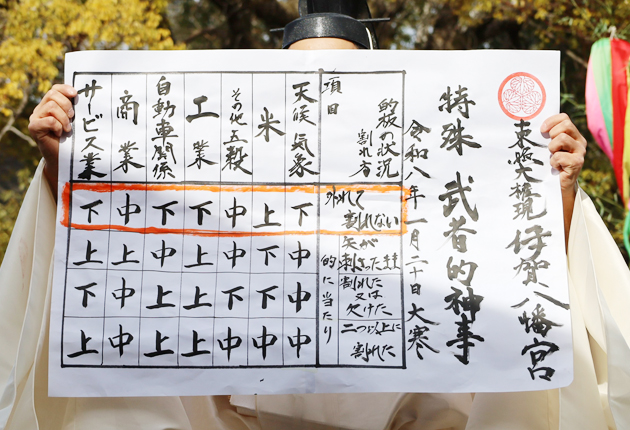 東照大権現 伊賀八幡宮
特殊 武者的神事
令和八年一月二十日 大寒
的板の状況
割れ方
項目
天候 気象
米
その他五穀
工業
自動車関係
商業
サービス業
外れて
割れない
下 上 中 下 下 中 下
的に当たり
矢が
刺さったまま
中 中 中 上 中 上 上
割れた
又は
欠けた
中 下 下 下 上 中 下
二つ以上に
割れた
中 中 中 上 上 中 上